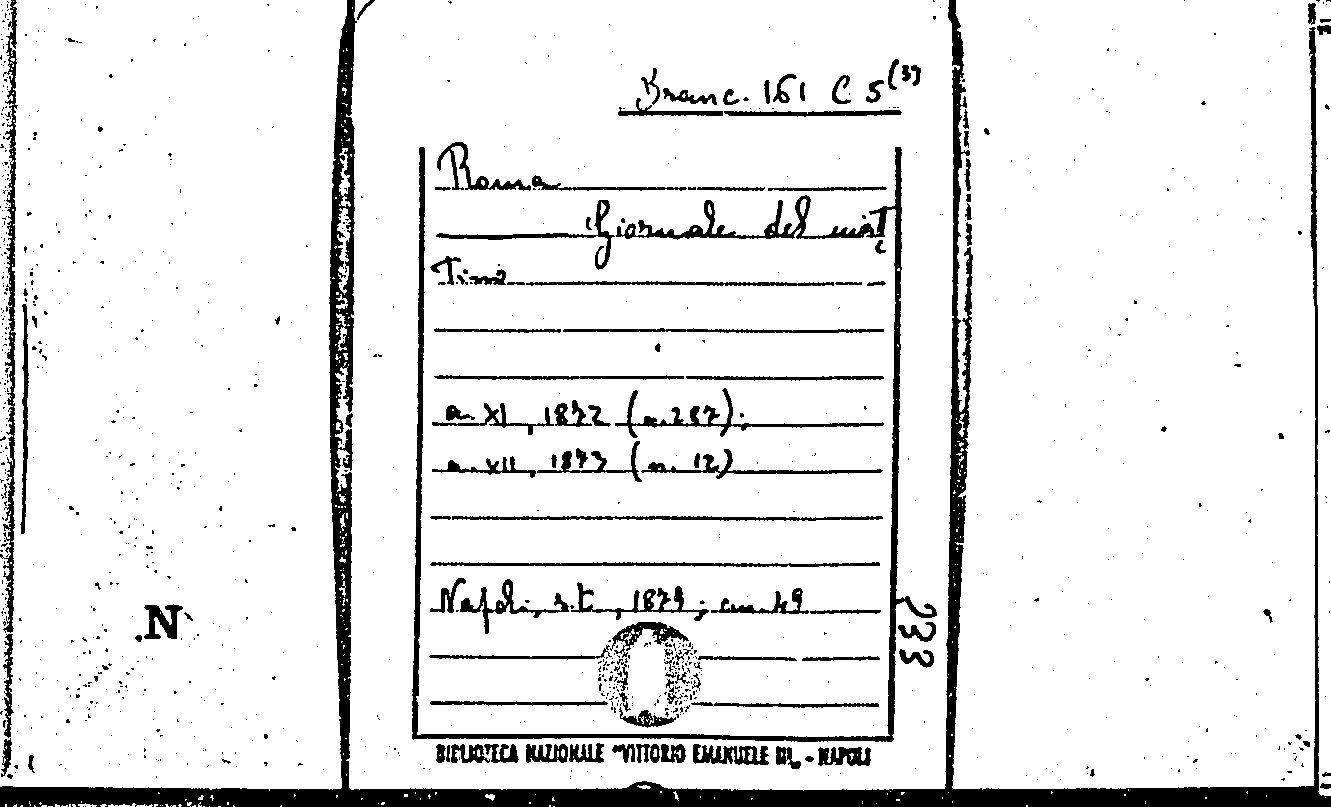 Branc. 161 C 5(3)
Roma
Giornale del mat
tino
a. XI, 1872 (n. 287);
a. XII, 1873 (n. 12)
Napoli, s.t., 1873; cm. 49
233
.N
BIBLIOTECA NAZIONALE "VITTORIO EMANUELE III„ - NAPOLI